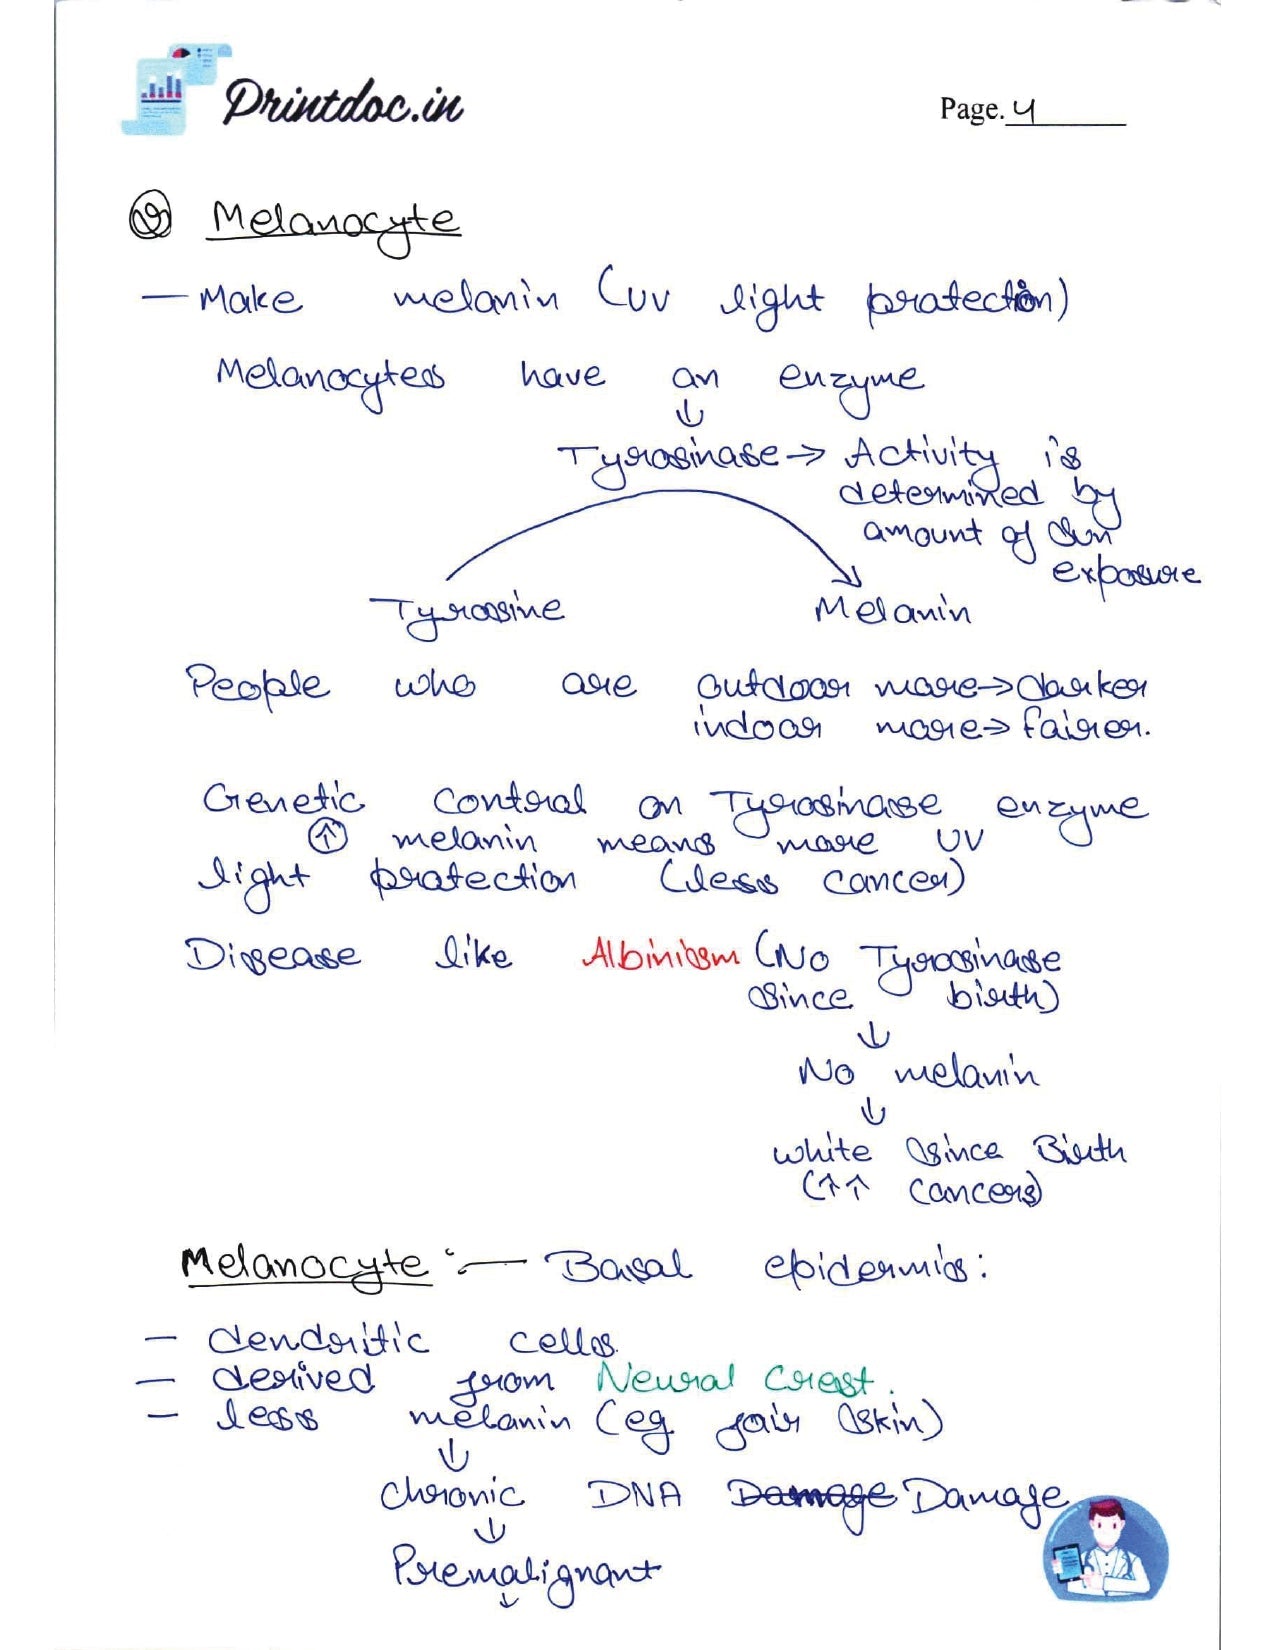 Printdoc.in
Page. 4
② Melanocyte
— Make melanin (UV light protection)
Melanocytes have an enzyme
↓
Tyrosinase → Activity is
determined by
amount of Sun
exposure
Tyrosine Melanin
People who are outdoor more → darker
indoor more → fairer.
Genetic control on Tyrosinase enzyme
↑ melanin means more UV
light protection (less cancer)
Disease like Albinism (No Tyrosinase
since birth)
↓
No melanin
↓
white since Birth
(↑↑ cancers)
Melanocyte :— Basal epidermis:
— dendritic cells
— derived from Neural Crest.
— less melanin (eg fair skin)
↓
chronic DNA Damage Damage
↓
Premalignant
↓